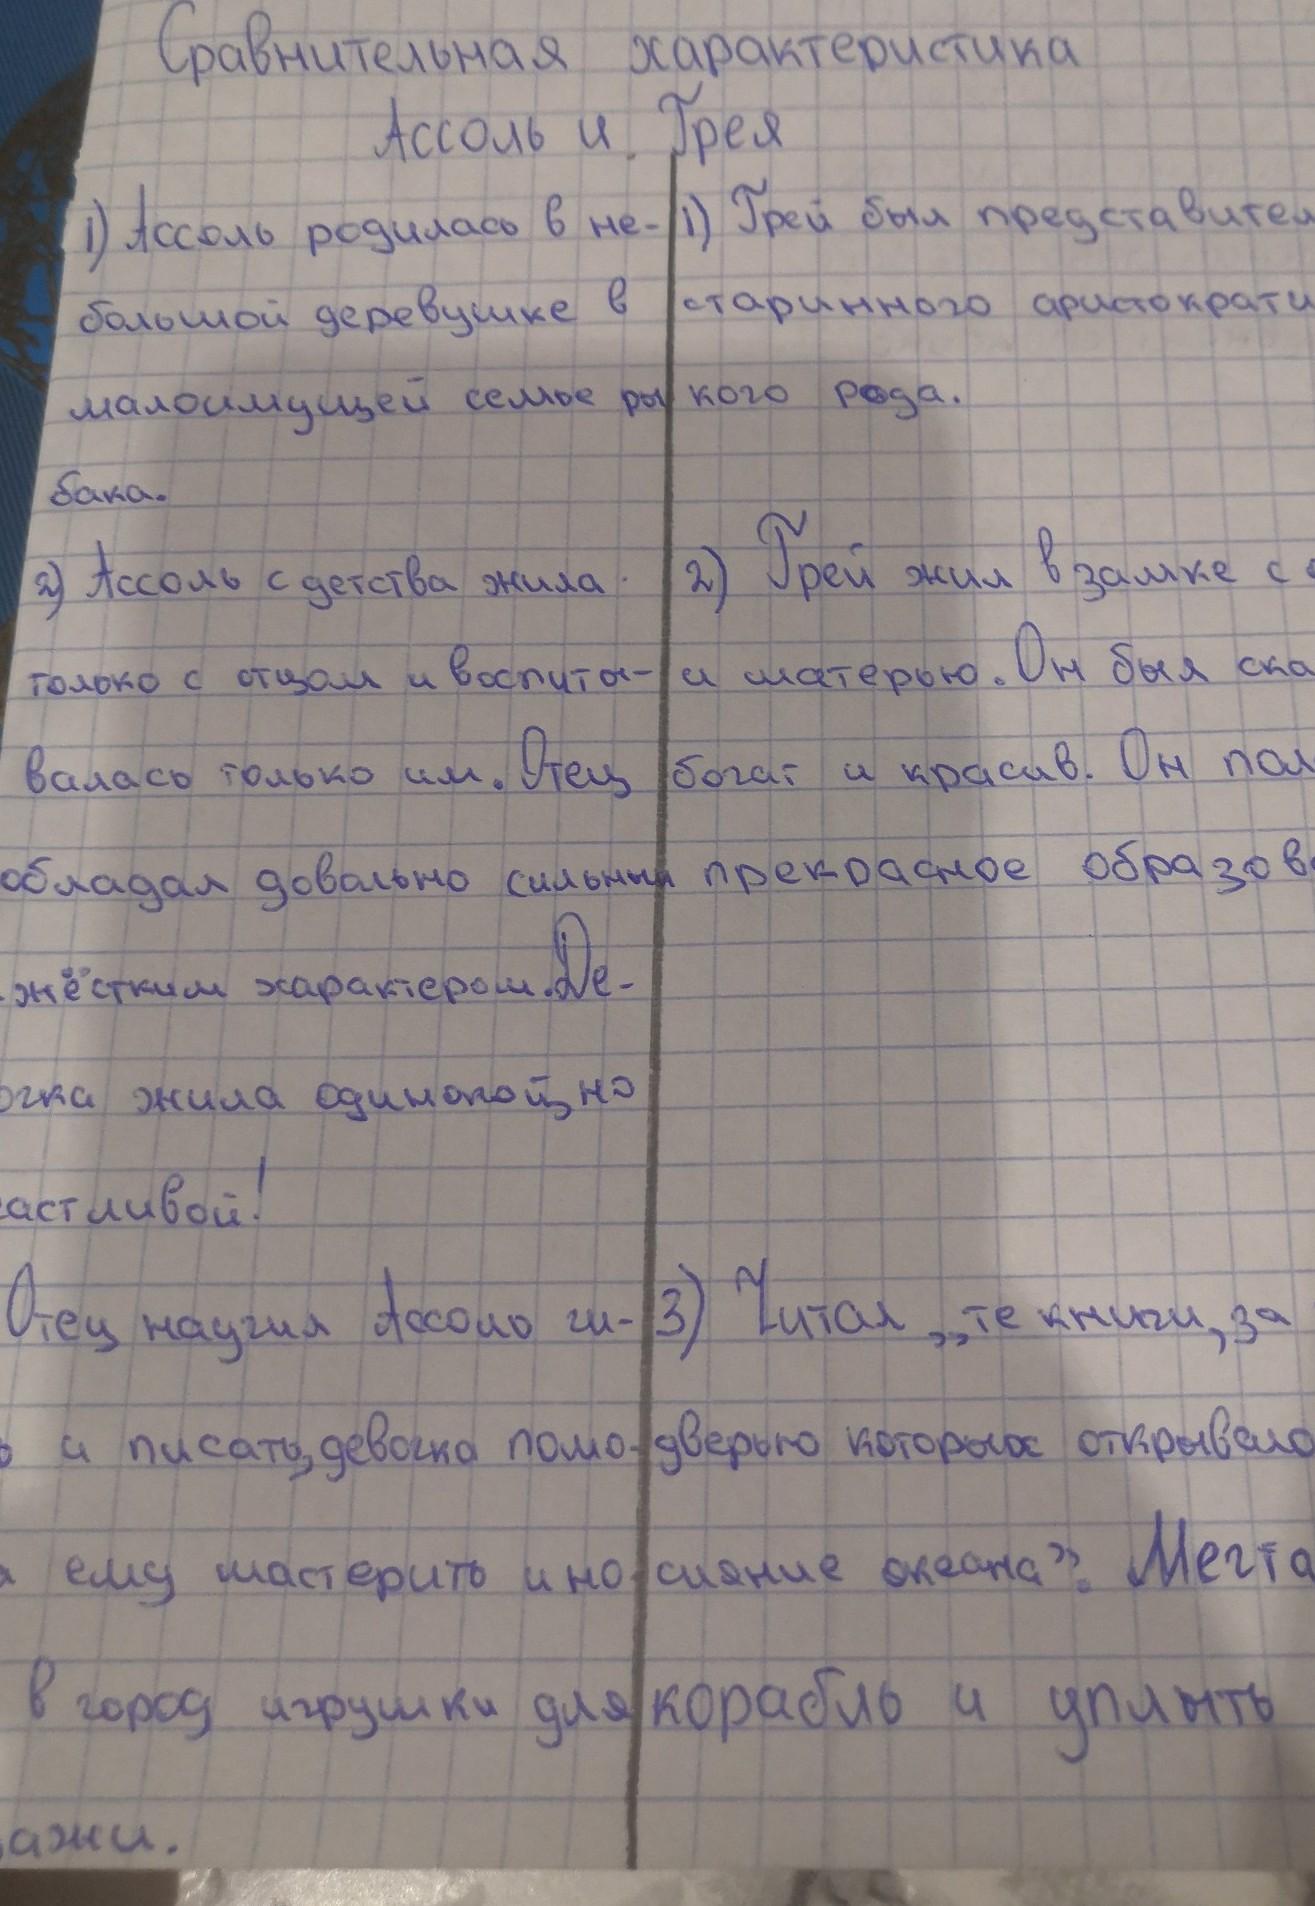 Сравнительная характеристика
Ассоль и Грея
1) Ассоль родилась в не-
большой деревушке в
малоимущей семье ры
бака.
2) Ассоль с детства жила
только с отцом и воспиты-
валась только им. Отец
обладал довольно сильным
жёстким характером. Де-
очка жила одинокой, но
астливой!
Отец научил Ассоль чи-
ь и писать, девочка помо-
а ему мастерить и но
в город игрушки для
ажи.
1) Грей был представител
старинного аристократи
кого рода.
2) Грей жил в замке с о
и матерью. Он был ска
богат и красив. Он пол
прекрасное образов
3) Читал „те книги, за
дверью которых открывало
сияние океана”. Мечта
корабль и уплыть